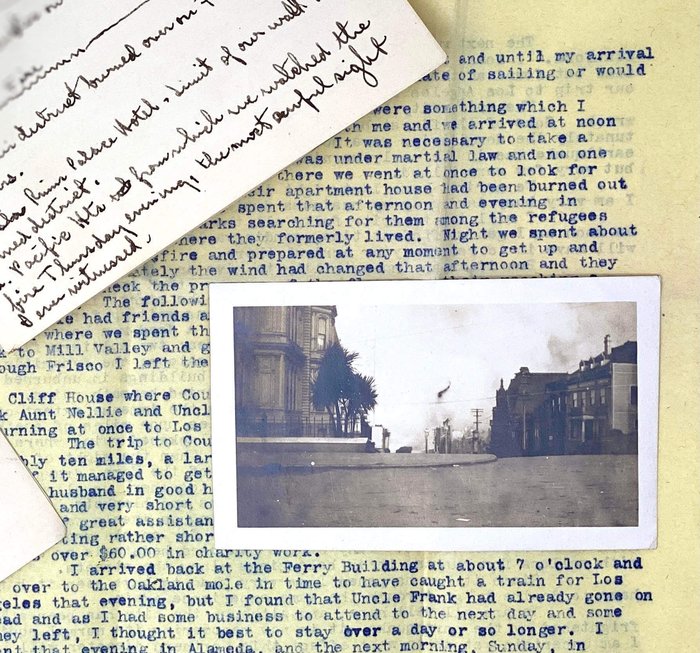 district burned over on
Palace Hotel. Limit of our walk
ned district.
Pacific Hts from which we watched the
fire Thursday evening, the most awful sight
I ever witnessed.
and until my arrival
ate of sailing or would
were something which I
th me and we arrived at noon
It was necessary to take a
was under martial law and no one
there we went at once to look for
eir apartment house had been burned out
spent that afternoon and evening in
arks searching for them among the refugees
here they formerly lived. Night we spent about
fire and prepared at any moment to get up and
ately the wind had changed that afternoon and they
eck the pr
The followi
e had friends a
where we spent th
k to Mill Valley and g
ough Frisco I left the
Cliff House where Cou
k Aunt Nellie and Uncl
urning at once to Los
The trip to Cou
bly ten miles, a lar
it managed to get
husband in good h
and very short o
great assistan
ting rather shor
over $60.00 in charity work.
I arrived back at the Ferry Building at about 7 o'clock and
over to the Oakland mole in time to have caught a train for Los
geles that evening, but I found that Uncle Frank had already gone on
ead and as I had some business to attend to the next day and some
hey left, I thought it best to stay over a day or so longer. I
ent that evening in Alameda, and the next morning, Sunday, in